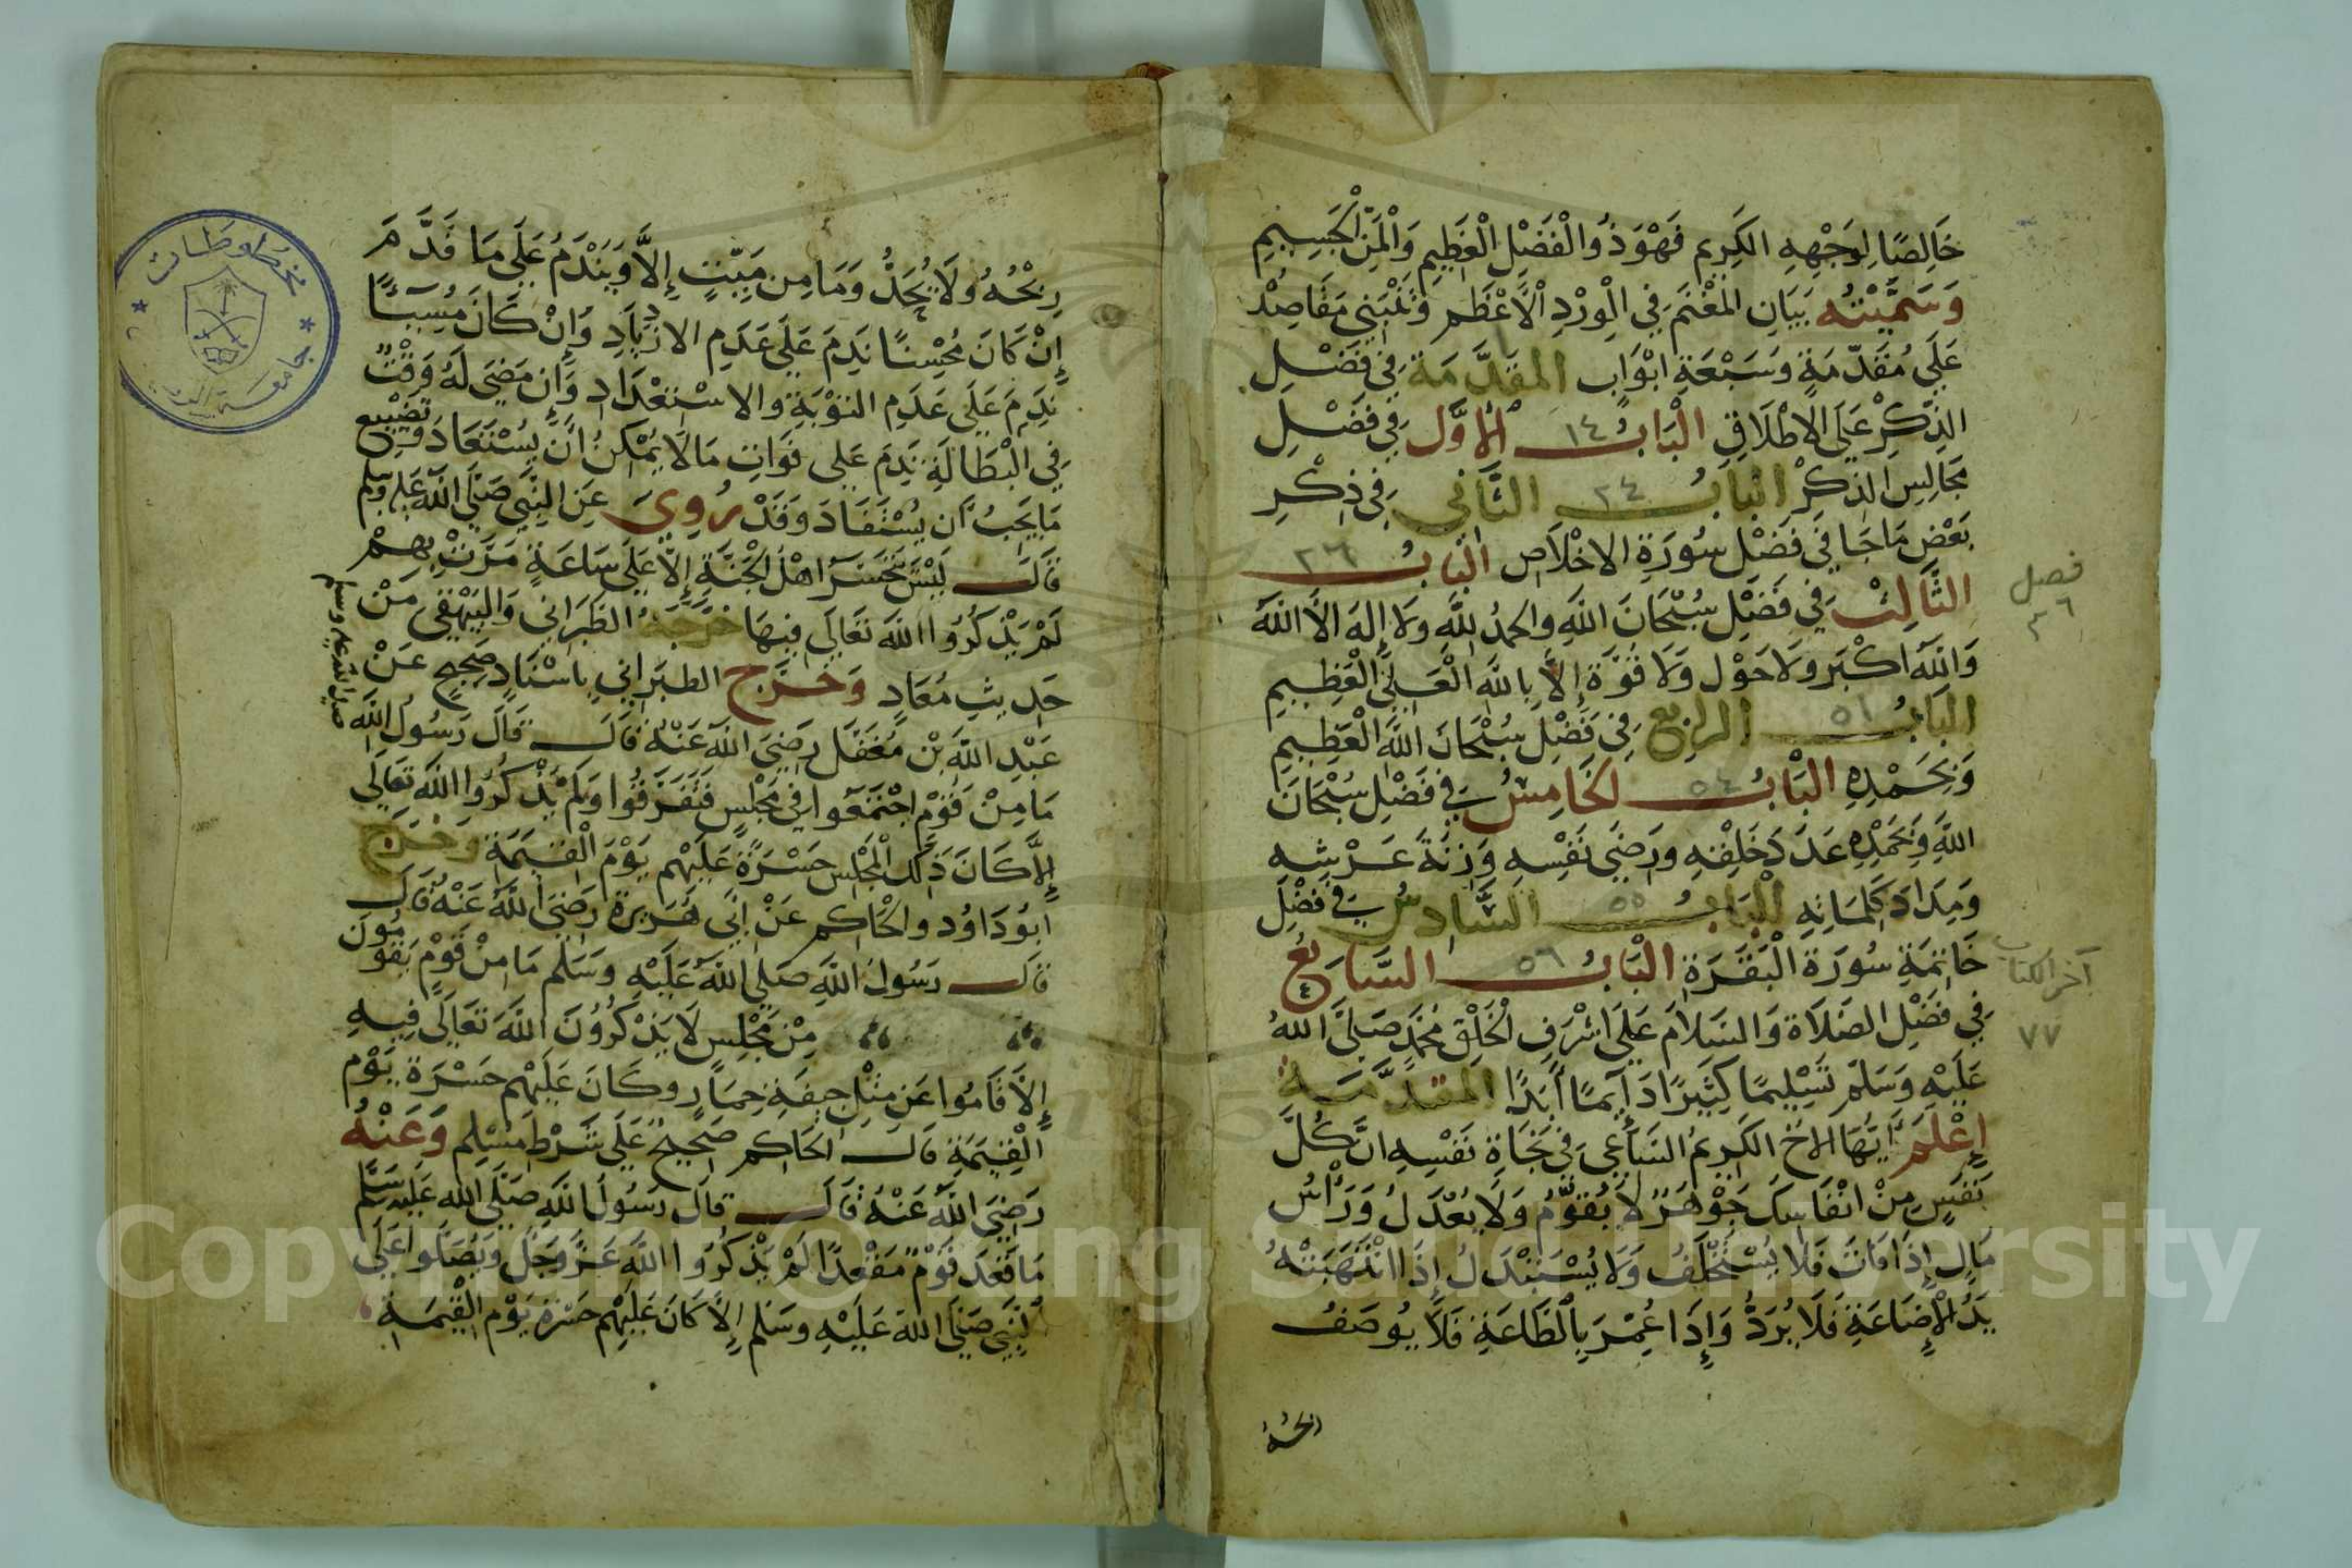 خَالِصًا لِوَجْهِهِ الكَرِيم فَهُوَ ذُو الْفَضْلِ الْعَظِيمِ وَالْمَنِّ الْجَسِيمِ
وَسَمَّيْتُه بَيَانِ المَغْنَم فِي الْوِرْدِ الْأَعْظَم وَيَنْبَنِي مَقَاصِدْ
عَلَى مُقَدّمَةٍ وَسَبْعَةِ ابْوَابٍ المقَدَّمَة فِي فَضْلِ
الذِّكْرِ عَلَى الاطْلَاقِ الْبَابُ ١٤ الْأَوَّل فِي فَضْلِ
مَجَالِسِ الذِكْرْ البَابُ ٢٤ الثَّانِي فِي ذِكْرِ
بَعْضِ مَا جَا فِي فَضْلِ سُورَةِ الاخْلَاصِ البَابُ ٣٦
الثَّالِثْ فِي فَضْلِ سُبْحَانَ اللَّهِ وَالحَمدُ لِلَّهِ وَلَا إِلَهَ الَّا اللَّهُ
وَاللَّهُ اكْبَر وَلَا حَوْلَ وَلَا قُوَّةَ إِلَّا بِاللَّهِ الْعَلِيِّ الْعَظِيمِ
البَابُ ٥١ الرابع فِي فَضْلِ سُبْحَانَ اللَّهِ الْعَظِيمِ
وَبِحَمْدِهِ الْبَابُ ٥٤ الخَامِسُ فِي فَضْلِ سُبْحَانَ
اللَّهِ وَبِحَمْدِهِ عَدَدَ خَلْقِهِ وَرِضَى نَفْسِهِ وَزِنَةَ عَرْشِهِ
وَمِدَادَ كَلِمَاتِهِ الْبَابُ ٥٥ السَّادِسُ فِي فَضْلِ
خَاتِمَةِ سُورَةِ الْبَقَرَةِ الْبَابُ ٥٦ السَّابِعُ
فِي فَضْلِ الصَلَاةِ وَالسَلَامَ عَلَى اشْرَفِ الْخَلْقِ مُحَمَّدٍ صَلَّى اللهُ
عَلَيْهِ وَسَلَّم تَسْلِيمًا كَثِيرًا دَائِمًا أَبَدًا المَقَدَّمَة
إِعْلَم أَيُّهَا الاخُ الكَرِيمُ السَاعِي فِي نَجَاةِ نَفْسِهِ انَّ كُلَّ
نَفَسٍ مِنْ انْفَاسِكَ جَوْهَرٌ لَا يُقَوَّمُ وَلَا يُعْدَلُ وَرَأْسُ
مَالٍ إِذَا فَاتَ فَلَا يُسْتَخْلَفُ وَلَا يُسْتَبْدَلُ إِذَا انْتَهَبَتْهُ
يَدُ الْإِضَاعَةِ فَلَا يُرَدُّ وَإِذَا عُمِّرَ بِالطَّاعَةِ فَلَا يُوصَفُ
فصل
٣٦
آخر الكتاب
٧٧
رِبْحُهُ وَلَا يُحَدُّ وَمَا مِن مَيِّتٍ إِلَّا وَيَنْدَمُ عَلَى مَا قَدَّمَ
إِنْ كَانَ مُحْسِنًا نَدِمَ عَلَى عَدَمِ الازْدِيَادِ وَإِنْ كَانَ مُسِيئًا
نَدِمَ عَلَى عَدَمِ التَوْبَةِ وَالاسْتِعْدَادِ وَإِن مَضَى لَهُ وَقْتٌ
فِي الْبَطَالَةِ نَدِمَ عَلَى فَوَاتِ مَا لَا يُمْكِنُ أَنْ يُسْتَعَادَ وَتَضْيِيع
مَا يَجِبُ أَن يُسْتَفَادَ وَقَدْ رُوِيَ عَنِ النَّبِي صَلَّى اللَّهُ عَلَيْهِ وَسَلَّم
قَالَ لَيْسَ يَتَحَسَّرُ اهْلُ الْجَنَّةِ إِلَّا عَلَى سَاعَةٍ مَرَّتْ بِهِمْ
لَمْ يَذْكُرُوا اللَّهَ تَعَالَى فِيهَا خَرَّجَهُ الطَبَرَانِي وَالبَيْهَقِي مِنْ
حَدِيثِ مُعَاذٍ وَخَرَّج الطبَرَانِي بِاسْنَادٍ صَحِيحٍ عَنْ
عَبْدِ اللَّهِ بْن مُغَفَّل رَضِيَ اللَّهُ عَنْهُ قَالَ قَالَ رَسُولُ اللَّهِ
صلى الله عليه وسلم
مَا مِنْ قَوْمٍ اجْتَمَعُوا فِي مَجْلِسٍ فَتَفَرَّقُوا وَلَمْ يَذْكُرُوا اللَّهَ تَعَالَى
إِلَّا كَانَ ذَلِكَ الْمَجْلِس حَسْرَةً عَلَيْهِم يَوْمَ الْقِيَمَةِ وَخَرَّج
ابُو دَاوُد وَالْحَاكِم عَنْ أَبِي هُرَيْرَةَ رَضِيَ اللَّهُ عَنْهُ قَالَ
قَالَ رَسُولُ اللَّهِ صَلَى اللَّهُ عَلَيْهِ وَسَلَّم مَا مِنْ قَوْمٍ يَقُومُونَ
مِنْ مَجْلِسٍ لَا يَذْكُرُونَ اللَّهَ تَعَالَى فِيهِ
إِلَّا قَامُوا عَن مِثْلِ جِيفَةِ حِمَارٍ وَكَانَ عَلَيْهِم حَسْرَةً يَوْمَ
الْقِيَمَةِ قَالَ الحَاكِم صَحِيحٌ عَلَى شَرْطِ مُسْلِم وَعَنْهُ
رَضِيَ اللَّهُ عَنْهُ قَالَ قَالَ رَسُولُ اللَّهِ صَلَّى الله عَلَيْهِ وَسَلَّم
مَا قَعَدَ قَوْمٌ مَقْعَدًا لَمْ يَذْكُرُوا اللَّهَ عَزَّ وَجَلَّ وَيُصَلُّوا عَلَى
النَّبِيِّ صَلَّى اللَّهُ عَلَيْهِ وَسَلَّم إِلَّا كَانَ عَلَيْهِم حَسْرَةً يَوْمَ الْقِيَمَةِ
مخطوطات
جامعة
Copyright © King Saud University